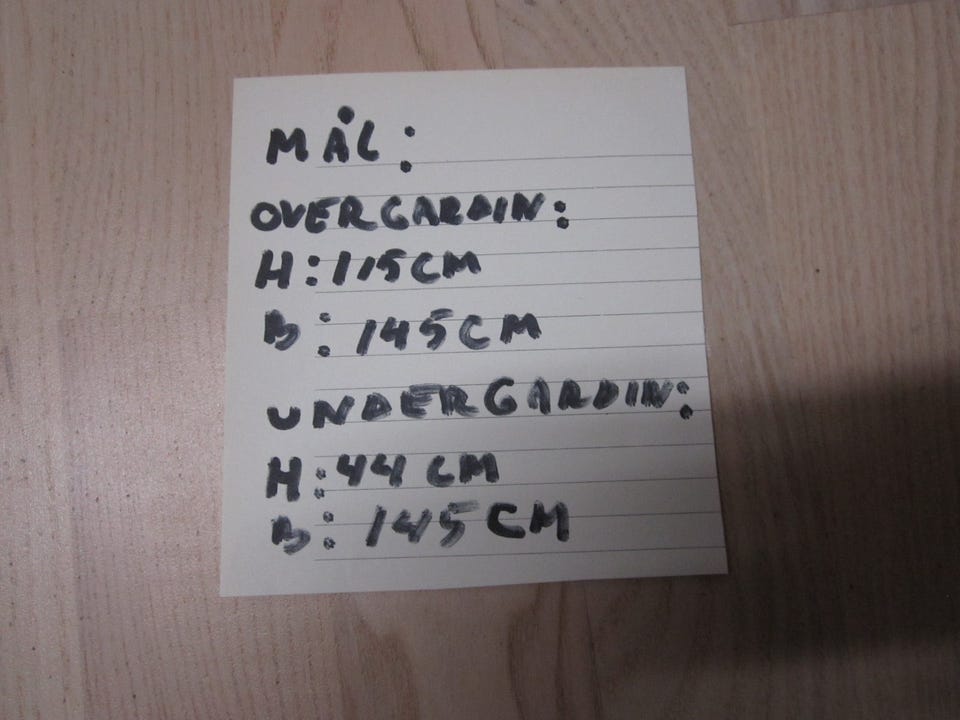 MÅL:
OVERGARDIN:
H: 115CM
B: 145CM
UNDERGARDIN:
H: 44 CM
B: 145CM